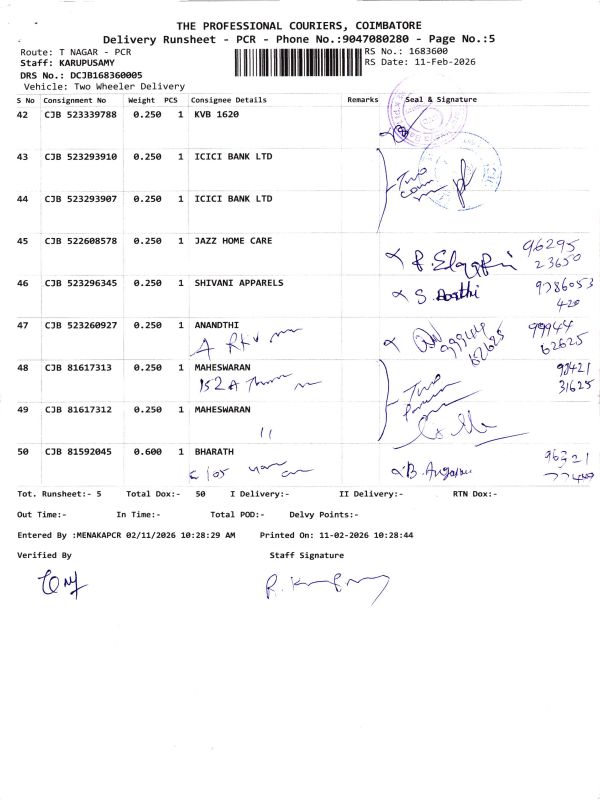 THE PROFESSIONAL COURIERS, COIMBATORE
Delivery Runsheet - PCR - Phone No.:9047080280 - Page No.:5
Route: T NAGAR - PCR
RS No.: 1683600
Staff: KARUPUSAMY
RS Date: 11-Feb-2026
DRS No.: DCJB168360005
Vehicle: Two Wheeler Delivery
S No Consignment No Weight PCS Consignee Details Remarks Seal & Signature
42 CJB 523339788 0.250 1 KVB 1620
43 CJB 523293910 0.250 1 ICICI BANK LTD
44 CJB 523293907 0.250 1 ICICI BANK LTD
Two
45 CJB 522608578 0.250 1 JAZZ HOME CARE
96295
23650
46 CJB 523296345 0.250 1 SHIVANI APPARELS
9786053
420
47 CJB 523260927 0.250 1 ANANDTHI
99944
62625
99944
62625
48 CJB 81617313 0.250 1 MAHESWARAN
152 A
Two
31625
49 CJB 81617312 0.250 1 MAHESWARAN
11
50 CJB 81592045 0.600 1 BHARATH
Tot. Runsheet:- 5 Total Dox:- 50 I Delivery:- II Delivery:- RTN Dox:-
Out Time:- In Time:- Total POD:- Delvy Points:-
Entered By :MENAKAPCR 02/11/2026 10:28:29 AM Printed On: 11-02-2026 10:28:44
Verified By Staff Signature